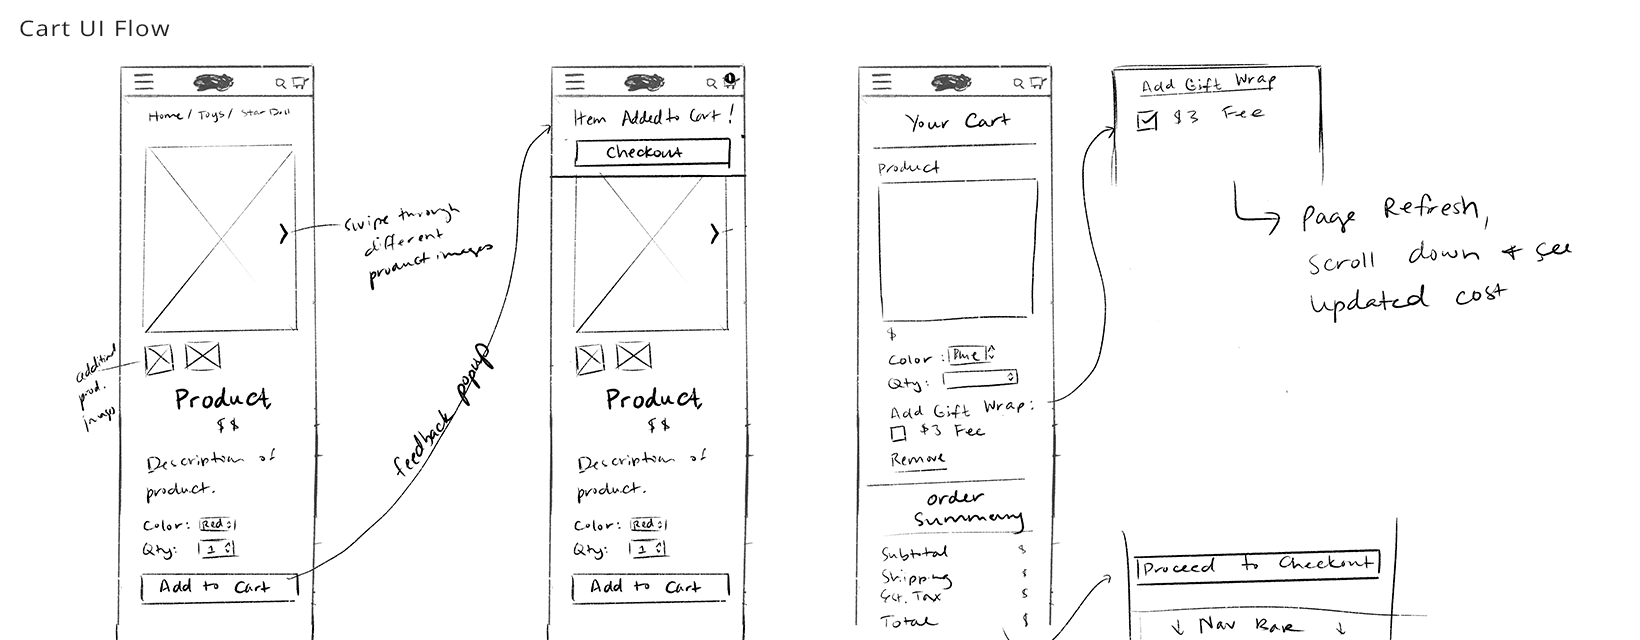 Cart UI Flow
Home / Toys / Star Doll
swipe through
different
product images
additional
prod.
images
Product
$$
Description of
product.
Color: Red
Qty: 1
Add to Cart
feedback popup
1
Item Added to Cart!
Checkout
Product
$$
Description of
product.
Color: Red
Qty: 1
Add to Cart
Your Cart
Product
$
Color: Blue
Qty:
Add Gift Wrap:
$3 Fee
Remove
order
summary
Subtotal $
Shipping $
Est. Tax $
Total $
Add Gift Wrap
$3 Fee
Page Refresh,
scroll down + see
updated cost
Proceed to Checkout
↓ Nav Bar ↓